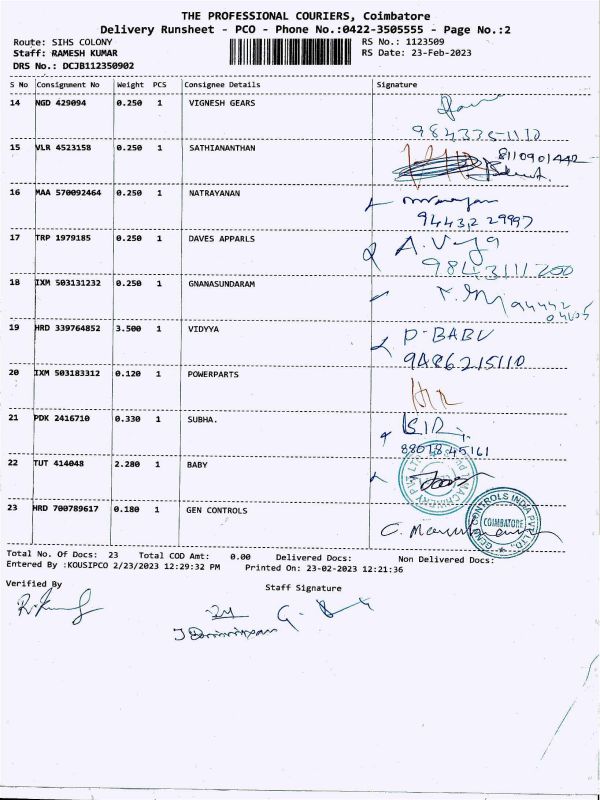 THE PROFESSIONAL COURIERS, Coimbatore
Delivery Runsheet - PCO - Phone No.:0422-3505555 - Page No.:2
Route: SIHS COLONY RS No.: 1123509
Staff: RAMESH KUMAR RS Date: 23-Feb-2023
DRS No.: DCJB112350902
S No Consignment No Weight PCS Consignee Details Signature
14 NGD 429094 0.250 1 VIGNESH GEARS
15 VLR 4523158 0.250 1 SATHIANANTHAN 8110901442
16 MAA 570092464 0.250 1 NATRAYANAN
94432 29997
17 TRP 1979185 0.250 1 DAVES APPARLS
9843111200
18 IXM 503131232 0.250 1 GNANASUNDARAM
19 HRD 339764852 3.500 1 VIDYYA P-BABU
9486215110
20 IXM 503183312 0.120 1 POWERPARTS
21 PDK 2416710 0.330 1 SUBHA.
88078 45161
22 TUT 414048 2.280 1 BABY
23 HRD 700789617 0.180 1 GEN CONTROLS COIMBATORE
Total No. Of Docs: 23 Total COD Amt: 0.00 Delivered Docs: Non Delivered Docs:
Entered By :KOUSIPCO 2/23/2023 12:29:32 PM Printed On: 23-02-2023 12:21:36
Verified By Staff Signature